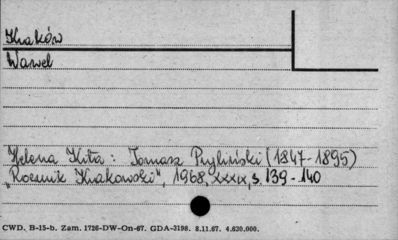 Kraków
Wawel
Helena Kita: Tomasz Pryliński (1847-1895)
„Rocznik Krakowski", 1968, XXXIX, s. 139-140
CWD. B-15-b. Zam. 1726-DW-On-67. GDA-3198. 8.11.67. 4.630.000.